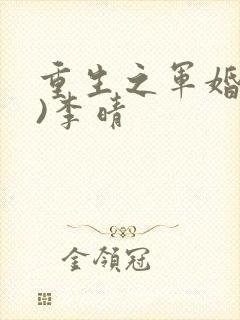 重生之军婚
)李晴
金领冠